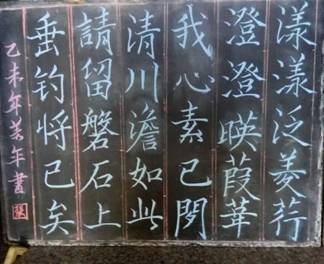 漾漾泛菱荇
澄澄暎葭葦
我心素已閑
清川澹如此
請留磐石上
垂钓将已矣
乙未年年書